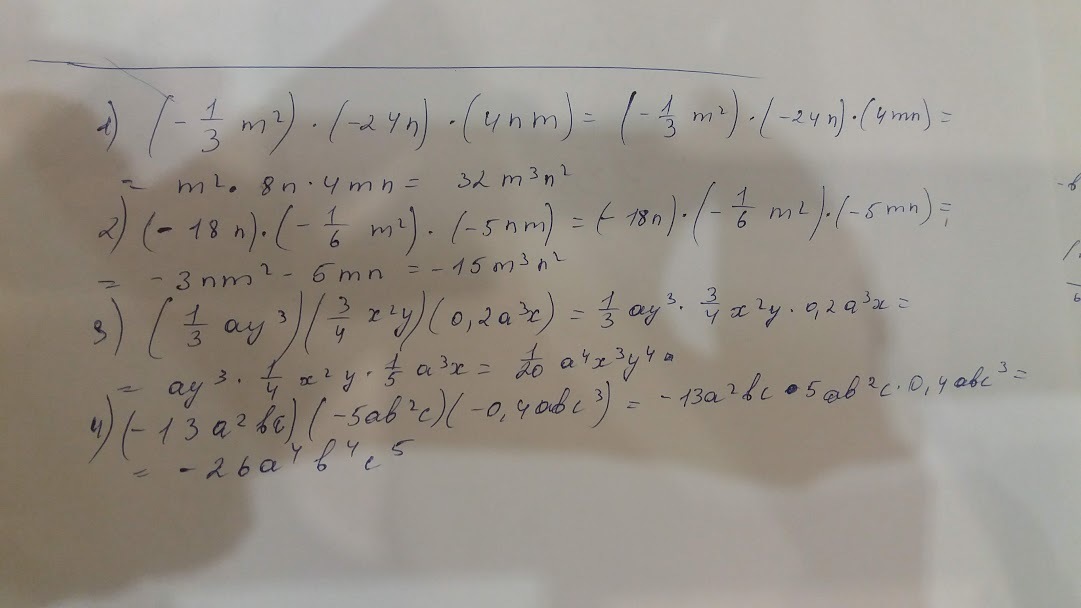 1) (-1/3 m²) · (-24n) · (4nm) = (-1/3 m²) · (-24n) · (4mn) =
= m² · 8n · 4mn = 32 m³n²
2) (-18n) · (-1/6 m²) · (-5nm) = (-18n) · (-1/6 m²) · (-5mn) =
= -3nm² - 5mn = -15m³n²
3) (1/3 ay³)(3/4 x²y)(0,2a³x) = 1/3 ay³ · 3/4 x²y · 0,2a³x =
= ay³ · 1/4 x²y · 1/5 a³x = 1/20 a⁴x³y⁴
4) (-13a²bc)(-5ab²c)(-0,4abc³) = -13a²bc · 5ab²c · 0,4abc³ =
= -26a⁴b⁴c⁵